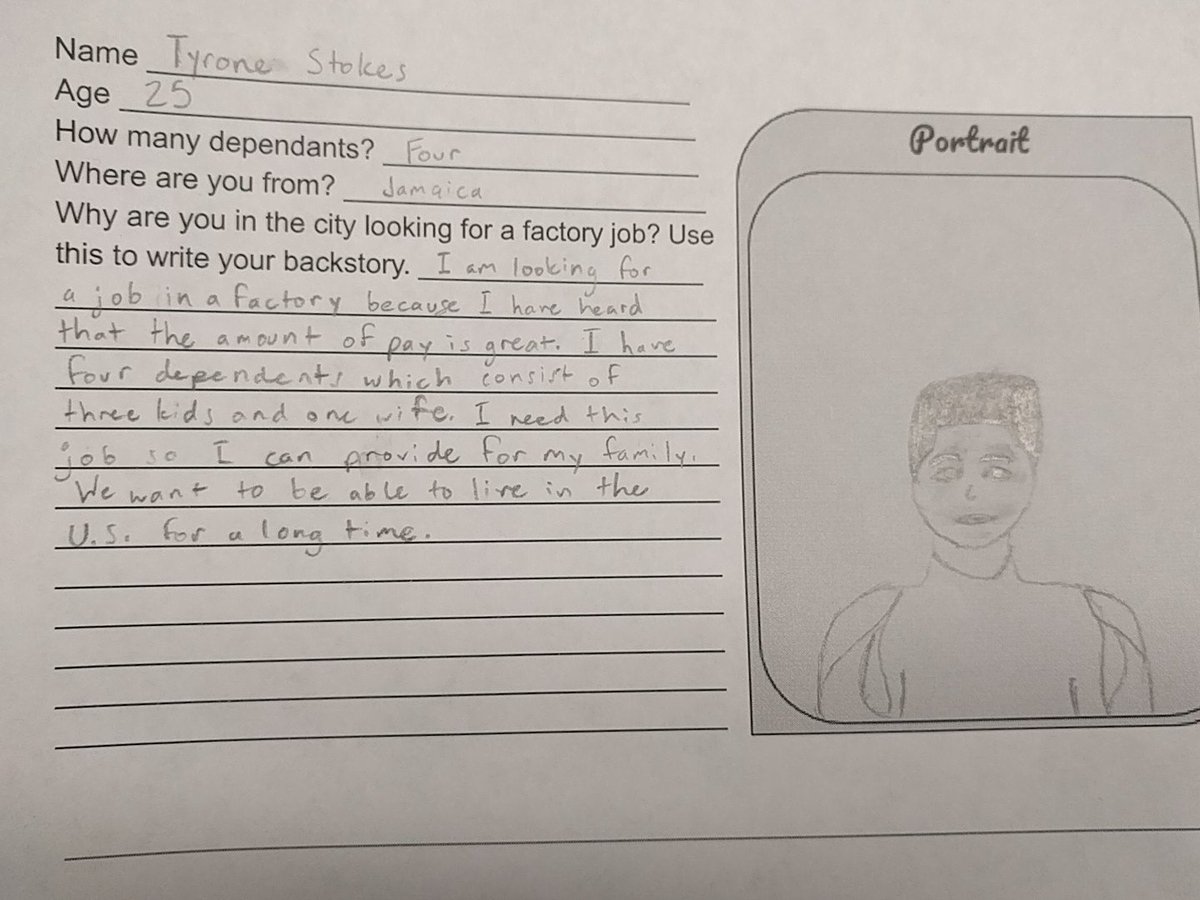 Name Tyrone Stokes
Age 25
How many dependants? Four
Where are you from? Jamaica
Why are you in the city looking for a factory job? Use
this to write your backstory. I am looking for
a job in a factory because I have heard
that the amount of pay is great. I have
four dependents which consist of
three kids and one wife. I need this
job so I can provide for my family.
We want to be able to live in the
U.S. for a long time.
Portrait